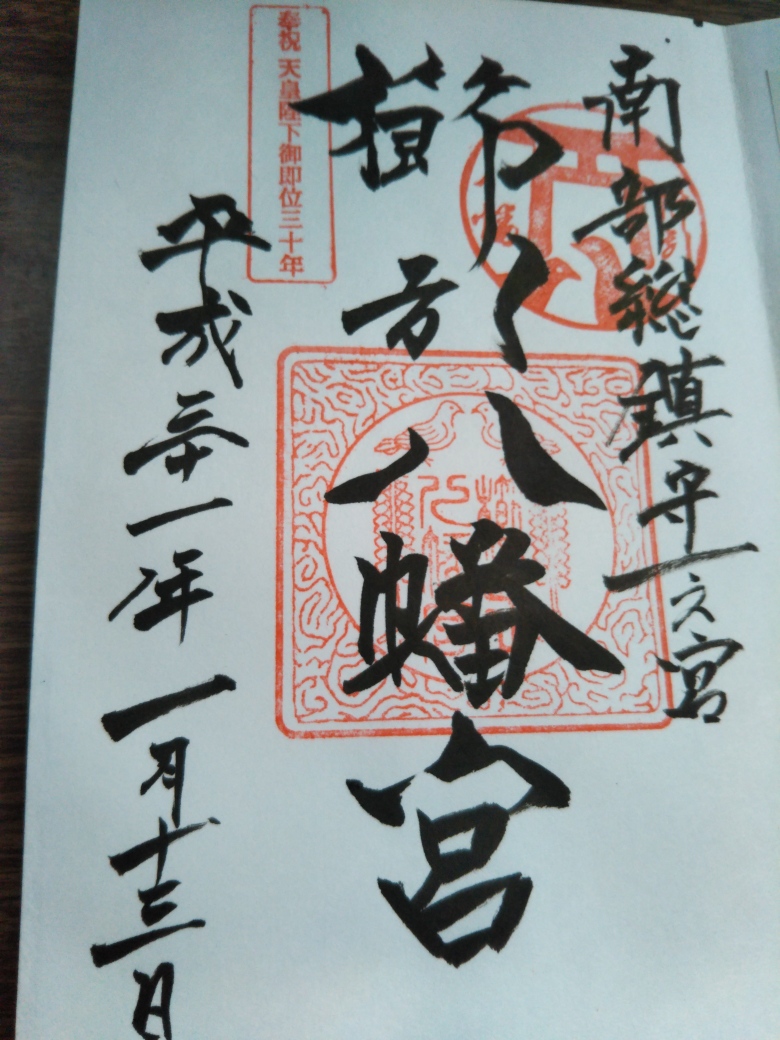 南部総鎮守一之宮
櫛引八幡宮
奉祝 天皇陛下御即位三十年
平成三十一年一月十三日